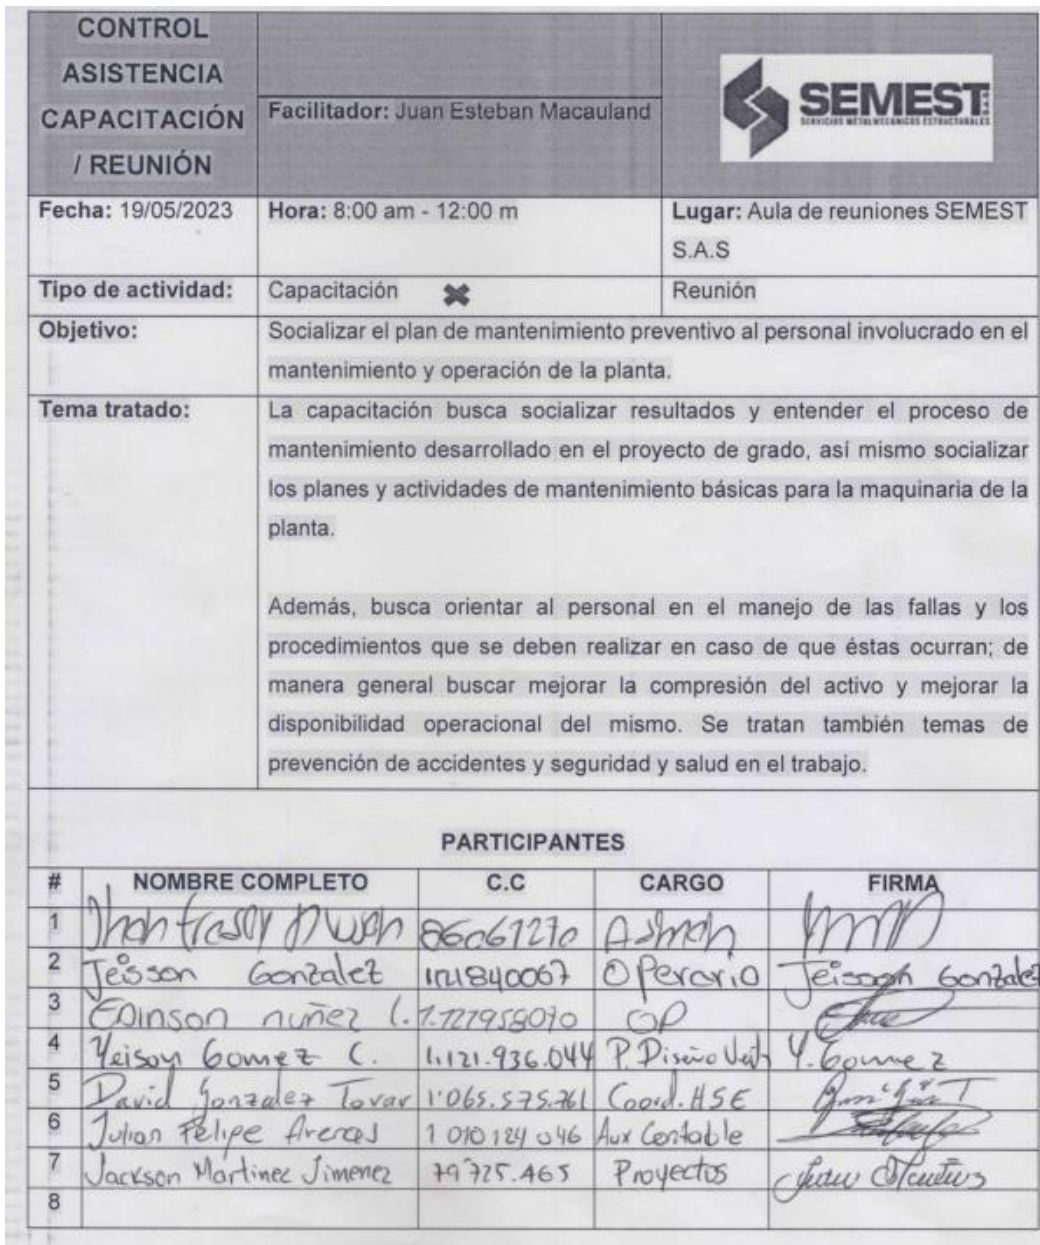 CONTROL
ASISTENCIA
CAPACITACIÓN
/ REUNIÓN
Facilitador: Juan Esteban Macauland
SEMEST S.A.S
SERVICIOS METALMECANICOS ESTRUCTURALES
Fecha: 19/05/2023 Hora: 8:00 am - 12:00 m Lugar: Aula de reuniones SEMEST
S.A.S
Tipo de actividad: Capacitación ✖ Reunión
Objetivo: Socializar el plan de mantenimiento preventivo al personal involucrado en el
mantenimiento y operación de la planta.
Tema tratado: La capacitación busca socializar resultados y entender el proceso de
mantenimiento desarrollado en el proyecto de grado, así mismo socializar
los planes y actividades de mantenimiento básicas para la maquinaria de la
planta.
Además, busca orientar al personal en el manejo de las fallas y los
procedimientos que se deben realizar en caso de que éstas ocurran; de
manera general buscar mejorar la compresión del activo y mejorar la
disponibilidad operacional del mismo. Se tratan también temas de
prevención de accidentes y seguridad y salud en el trabajo.
PARTICIPANTES
# NOMBRE COMPLETO C.C CARGO FIRMA
1 86061270
2 Jeisson Gonzalez Operario Jeisson Gonzalez
3 Edinson nuñez l. OP
4 Yeison Gomez C. 1.121.936.044 P. Diseño Y. Gomez
5 David Gonzalez Tovar 1'065.575.761 Coord. HSE
6 Julian Felipe Arenas 1 010 124 046 Aux Contable
7 Jackson Martinez Jimenez 79'725.465 Proyectos
8